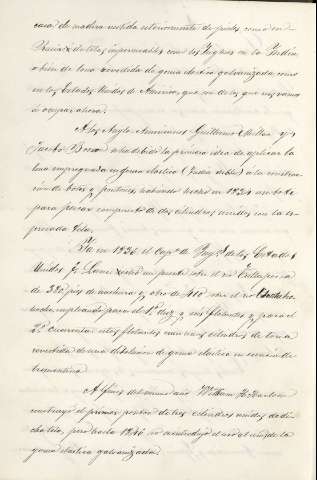 casa de madera vestida interiormente de pieles, como en
Rusia ó de telas impermeables como los Ingleses en la India,
ó bien de lona revestida de goma elastica galvanizada como
en los Estados Unidos de America, que es de los que nos vamos
á ocupar ahora.
A los Anglo Americanos Guillermo
es debida la primera idea de aplicar la
lona impregnada en goma elastica (India rubber) a la construc-
ción de botes y pontones, habiendo hecho en 1834 un bote
para pescar compuesto de dos cilindros unidos con la ex-
presada tela.
Ya en 1836 el Capn. de Ings. de los Estados
Unidos J. Lane echó un puente sobre el rio Tallapoosa
de 350 pies de anchura y otro de 410 sobre el rio
empleando para el 1º diez y seis flotantes y para el
2º cuarenta estos flotantes eran cilindros de lona
revestida de una disolucion de goma elastica en esencia de
trementina.
A fines del mismo año William
construyó el primer ponton de tres cilindros unidos de di-
cha tela, pero hasta 1846 no se introdujo el uso de la
goma elastica galvanizada.